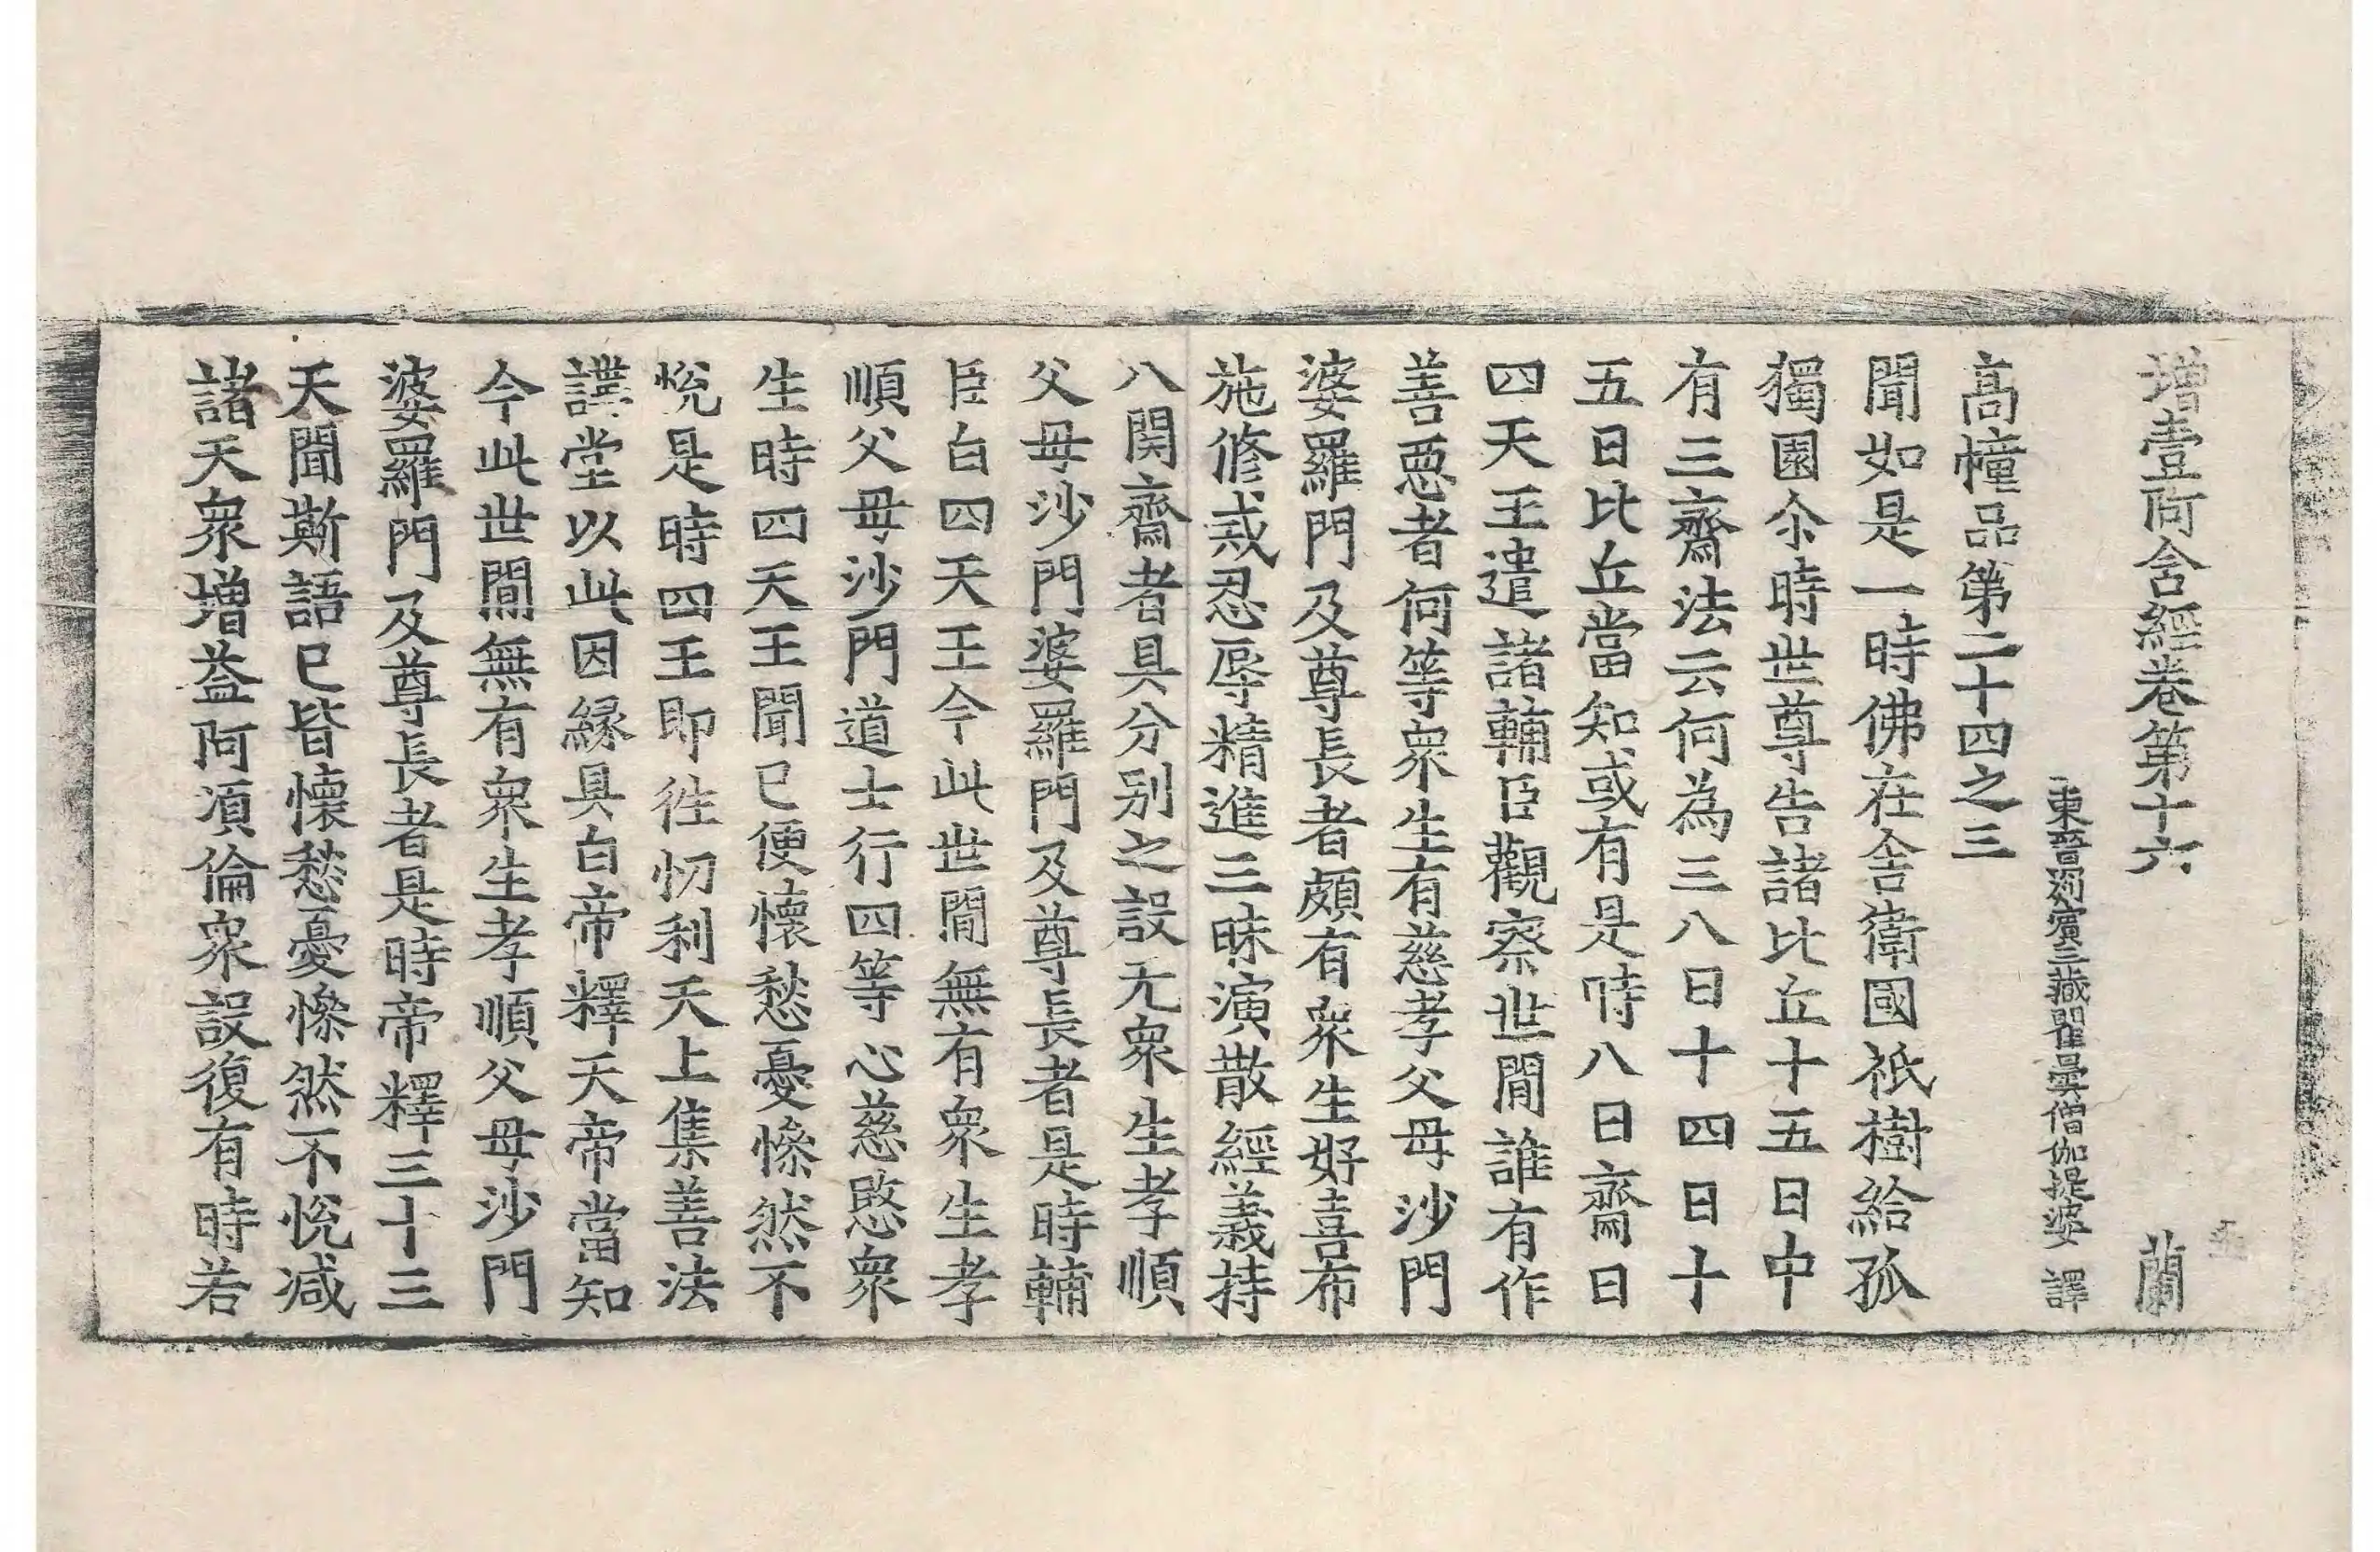 增壹阿含經卷第十六 蘭
東晉罽賓三藏瞿曇僧伽提婆 譯
高幢品第二十四之三
聞如是一時佛在舍衛國祇樹給孤
獨園尒時世尊告諸比丘十五日中
有三齋法云何為三八日十四日十
五日比丘當知或有是時八日齋日
四天王遣諸輔臣觀察世間誰有作
善惡者何等衆生有慈孝父母沙門
婆羅門及尊長者頗有衆生好喜布
施修戒忍辱精進三昧演散經義持
八関齋者具分別之設无衆生孝順
父母沙門婆羅門及尊長者是時輔
臣白四天王今此世間無有衆生孝
順父母沙門道士行四等心慈愍衆
生時四天王聞已便懷愁憂慘然不
悅是時四王即徃忉利天上集善法
講堂以此因緣具白帝釋天帝當知
今此世間無有衆生孝順父母沙門
婆羅門及尊長者是時帝釋三十三
天聞斯語已皆懷愁憂慘然不悅减
諸天衆增益阿湏倫衆設復有時若